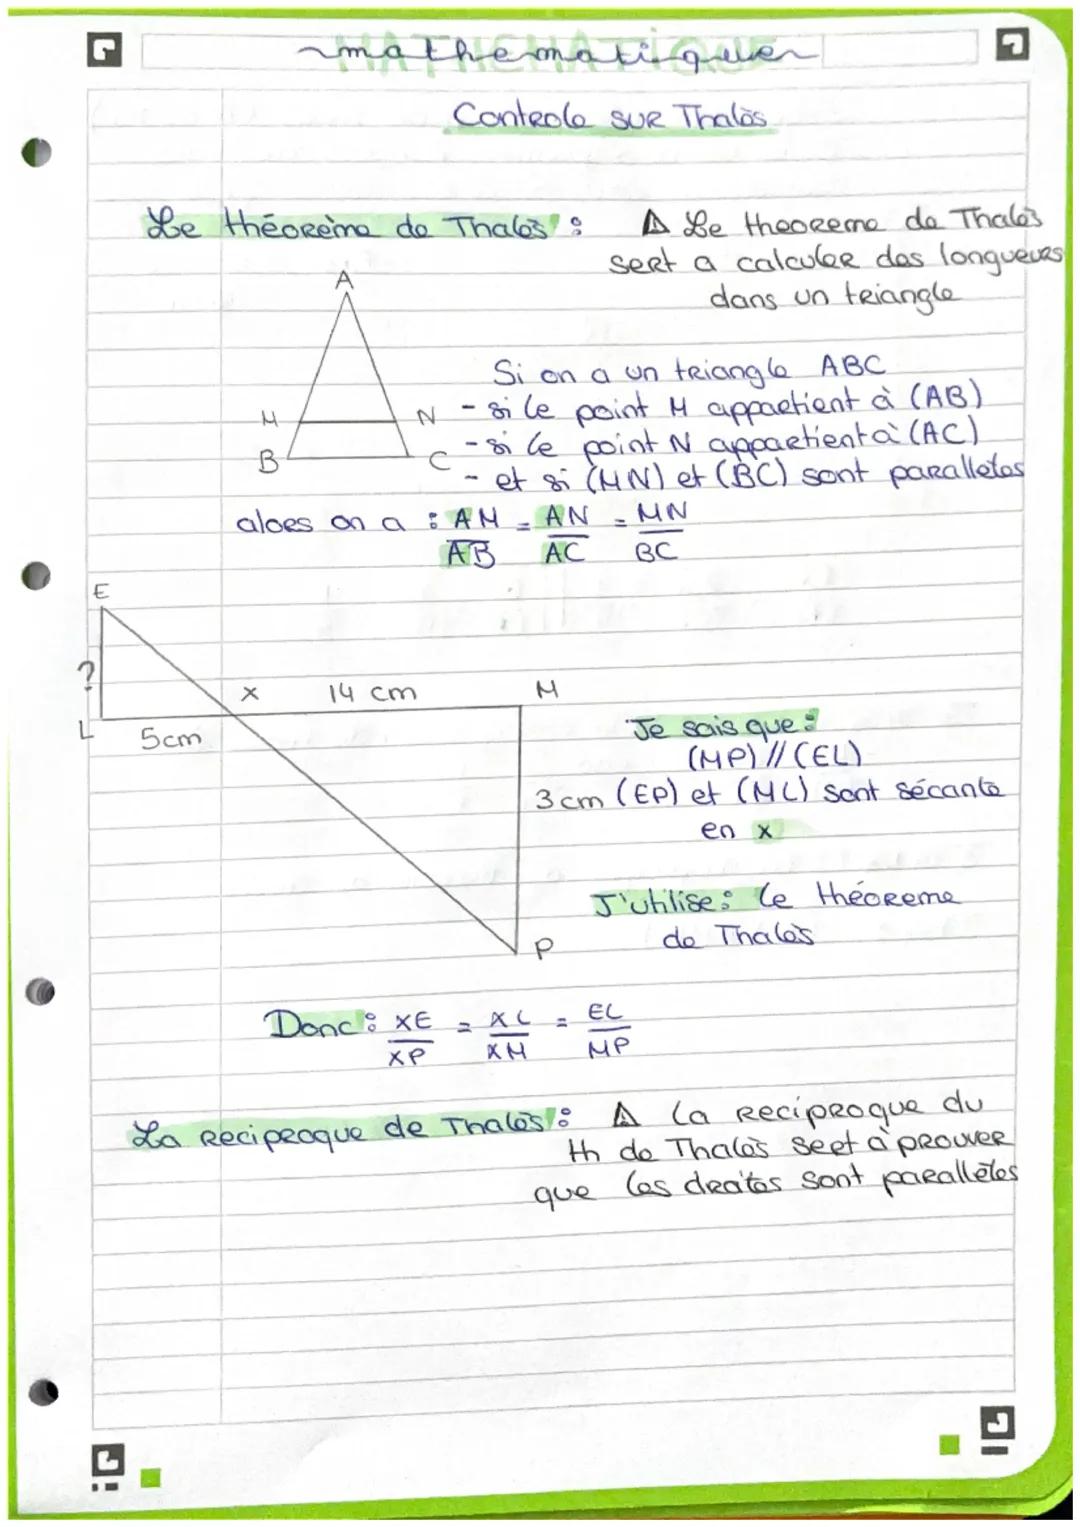 mathematiques
Controle sur Thalès
Le théorème de Thalès : ⚠ Le theoreme de Thalès
sert a calculer des longueurs
dans un triangle
A
Si on a un triangle ABC
M N - si le point M appartient à (AB)
B C - si le point N appartient à (AC)
- et si (MN) et (BC) sont parallèles
alors on a : AM/AB = AN/AC = MN/BC
E
? x 14 cm M
L 5cm
Je sais que :
(MP) // (EL)
3 cm (EP) et (ML) sont sécante
en x
J'utilise : le théoreme
P de Thalès
Donc : XE/XP = XL/XM = EL/MP
La reciproque de Thalès : ⚠ la reciproque du
th de Thalès sert à prouver
que les droites sont parallèles